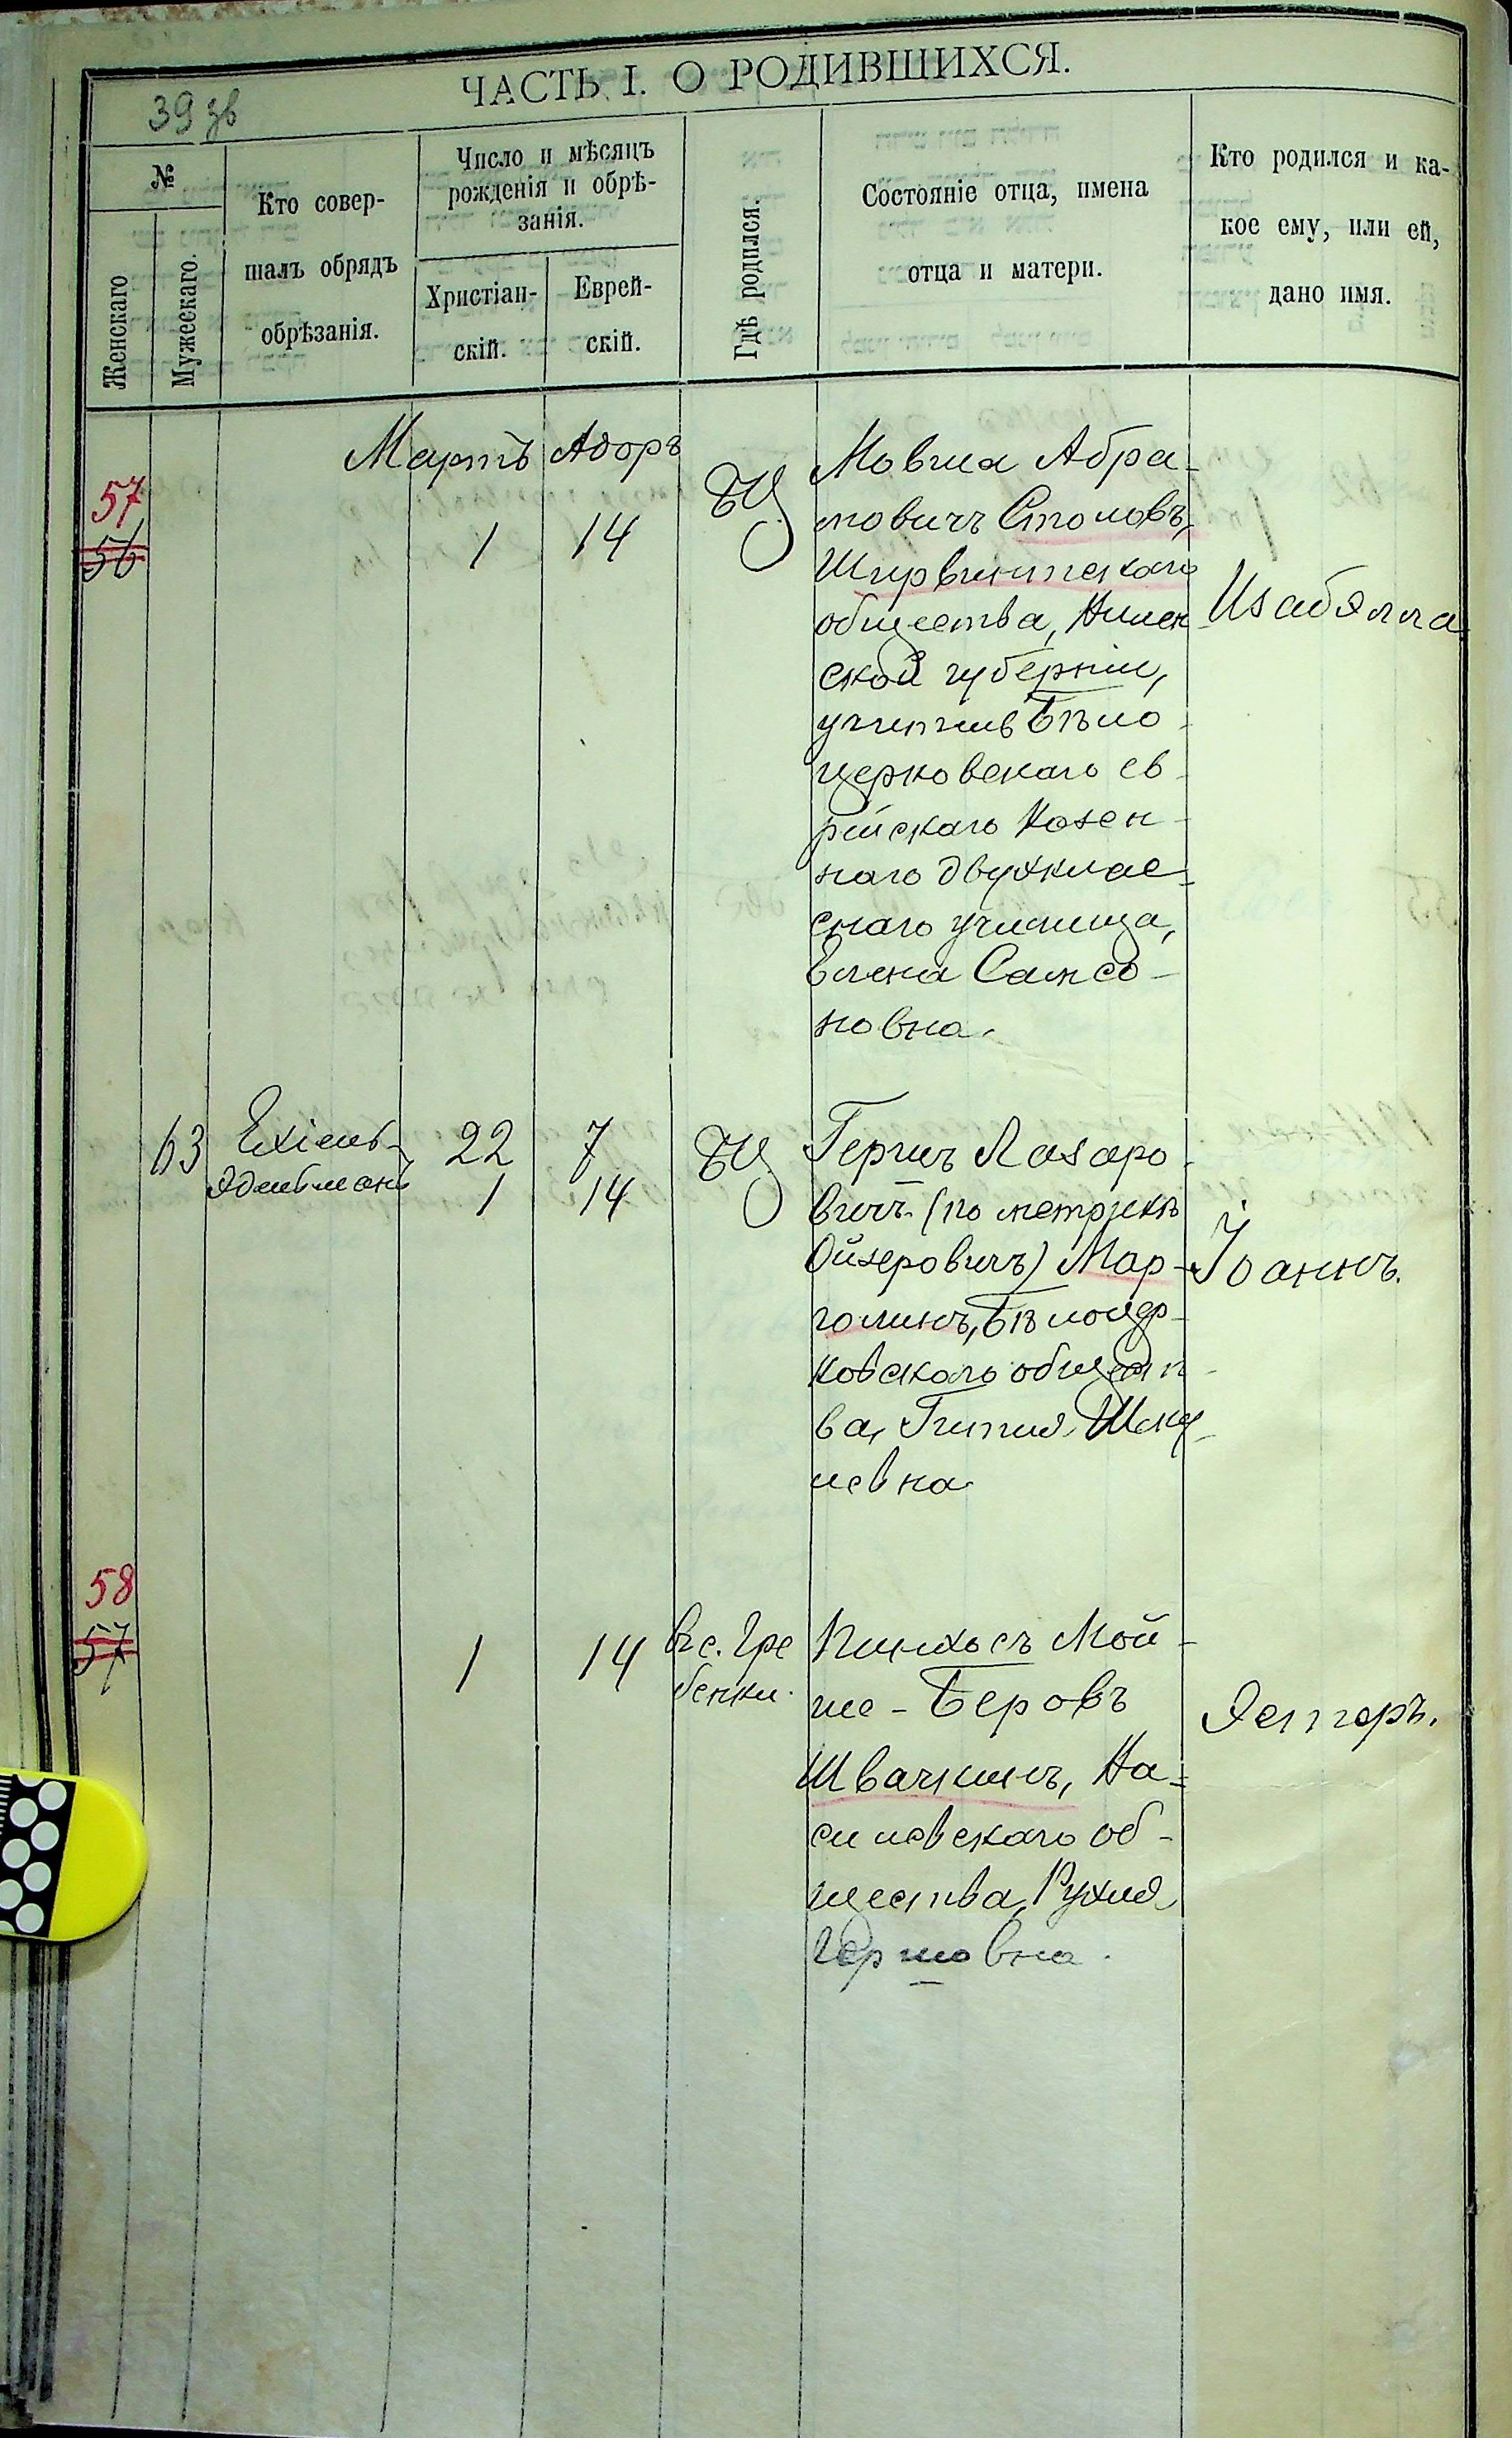 ЧАСТЬ I. О РОДИВШИХСЯ.
39 зв
№
Женскаго
Мужескаго.
Кто совер-
шалъ обрядъ
обрѣзанія.
Число и мѣсяцъ
рожденія и обрѣ-
занія.
Христіан-
скій.
Еврей-
скій.
Гдѣ родился.
Состояніе отца, имена
отца и матери.
Кто родился и ка-
кое ему, или ей,
дано имя.
Мартъ Адоръ
57
56
1 14
БЦ
Мовша Абра-
мовичъ Столовъ,
Ширвинтскаго
общества,
ской губерніи,
учитель Бѣло-
церковскаго ев-
рейскаго Казен-
наго двухклас-
снаго училища,
Елена Самсо-
новна.
Изабэлла
63
Ехіель
Эдельманъ
22 7
1 14
БЦ
Гершъ Лазаро-
вичъ (по метрикѣ
Ойзеровичъ) Мар-
голинъ, Бѣлоцер-
ковскаго общест-
ва, Гитля Шму-
левна
Іоаннъ.
58
57
1 14
въ с. Гре
бенки.
Пинхосъ Мой-
ше-Беровъ
Швачкинъ, Ка-
силевскаго об-
щества, Рухля
Гершовна.
Эстеръ.